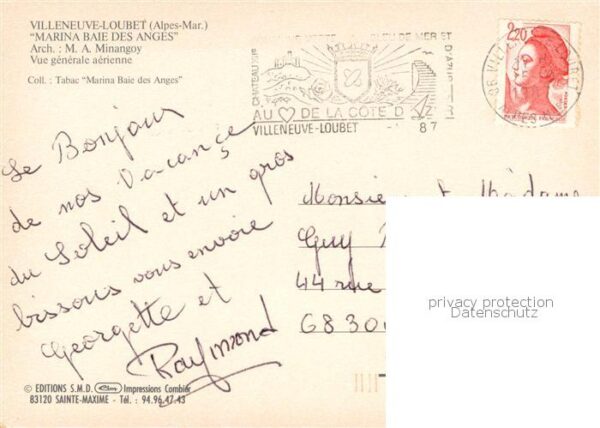 VILLENEUVE-LOUBET (Alpes-Mar.)
"MARINA BAIE DES ANGES"
Arch. : M. A. Minangoy
Vue générale aérienne
Coll. : Tabac "Marina Baie des Anges"
DE MER ET
D'AZUR
AU DE LA COTE D'AZUR
VILLENEUVE-LOUBET
87
2,20
Le Bonjour
de nos Vacançe
du Soleil et un gros
bissous vous envoie
Georgette et
Raymond
Monsieur et Madame
Guy
44 rue
6830
privacy protection
Datenschutz
© EDITIONS S.M.D. Cim Impressions Combier
83120 SAINTE-MAXIME - Tél. : 94.96.47.43